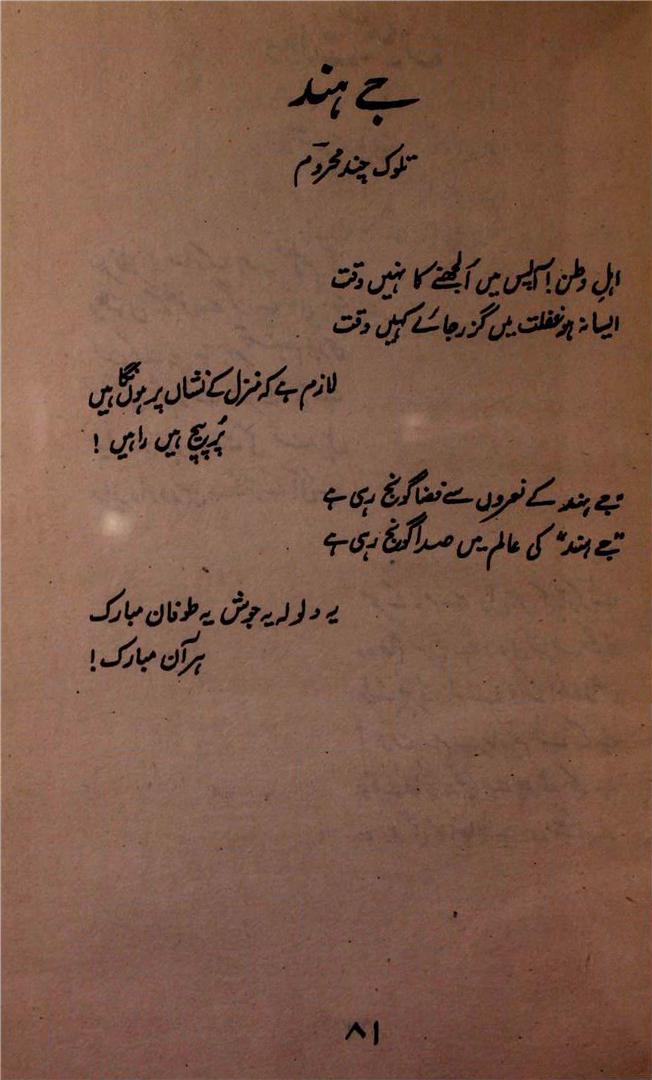 جے ہند
تلوک چند محرومؔ
اہلِ وطن! آپس میں اُلجھنے کا نہیں وقت
ایسا نہ ہو غفلت میں گزر جائے کہیں وقت
لازم ہے کہ منزل کے نشاں پر ہوں نگاہیں
پُر پیچ ہیں راہیں!
"جے ہند کے نعروں سے فضا گونج رہی ہے
"جے ہند" کی عالم میں صدا گونج رہی ہے
یہ ولولہ یہ جوش یہ طوفان مبارک
ہر آن مبارک!
۸۱